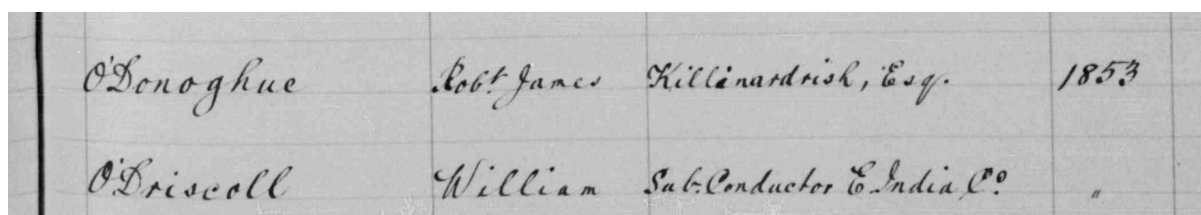 O'Donoghue Robt James Killinardrish, Esq. 1853
O'Driscoll William Sub-Conductor E India Co. "